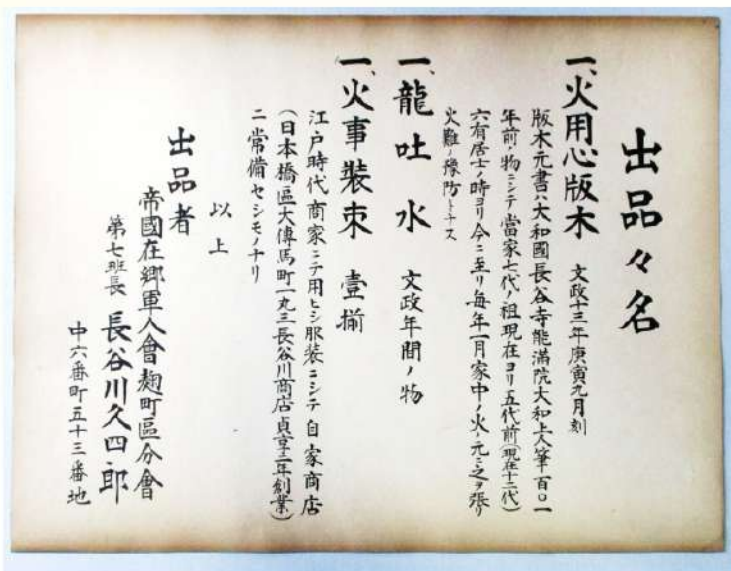 出品々名
一、火用心版木 文政十三年庚寅九月刻
版木元書ハ大和國長谷寺能滿院大和上人筆百〇一
年前ノ物ニシテ當家七代ノ祖現在ヨリ五代前(現在十二代)
六有居士ノ時ヨリ今ニ至リ毎年一月家中ノ火ノ元ニ之ヲ張リ
火難ノ豫防トナス
一、龍吐水 文政年間ノ物
一、火事裝束 壹揃
江戸時代商家ニテ用ヒシ服裝ニシテ自家商店
(日本橋區大傳馬町一丸三長谷川商店貞享三年創業)
ニ常備セシモノナリ
以上
出品者
帝國在郷軍人會麹町區分會
第七班長 長谷川久四郎
中六番町五十三番地